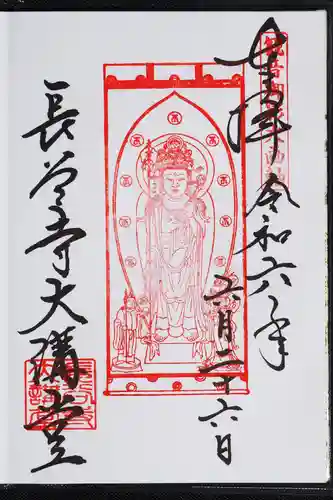 奉拝
令和六年
六月二十六日
長谷寺大講堂